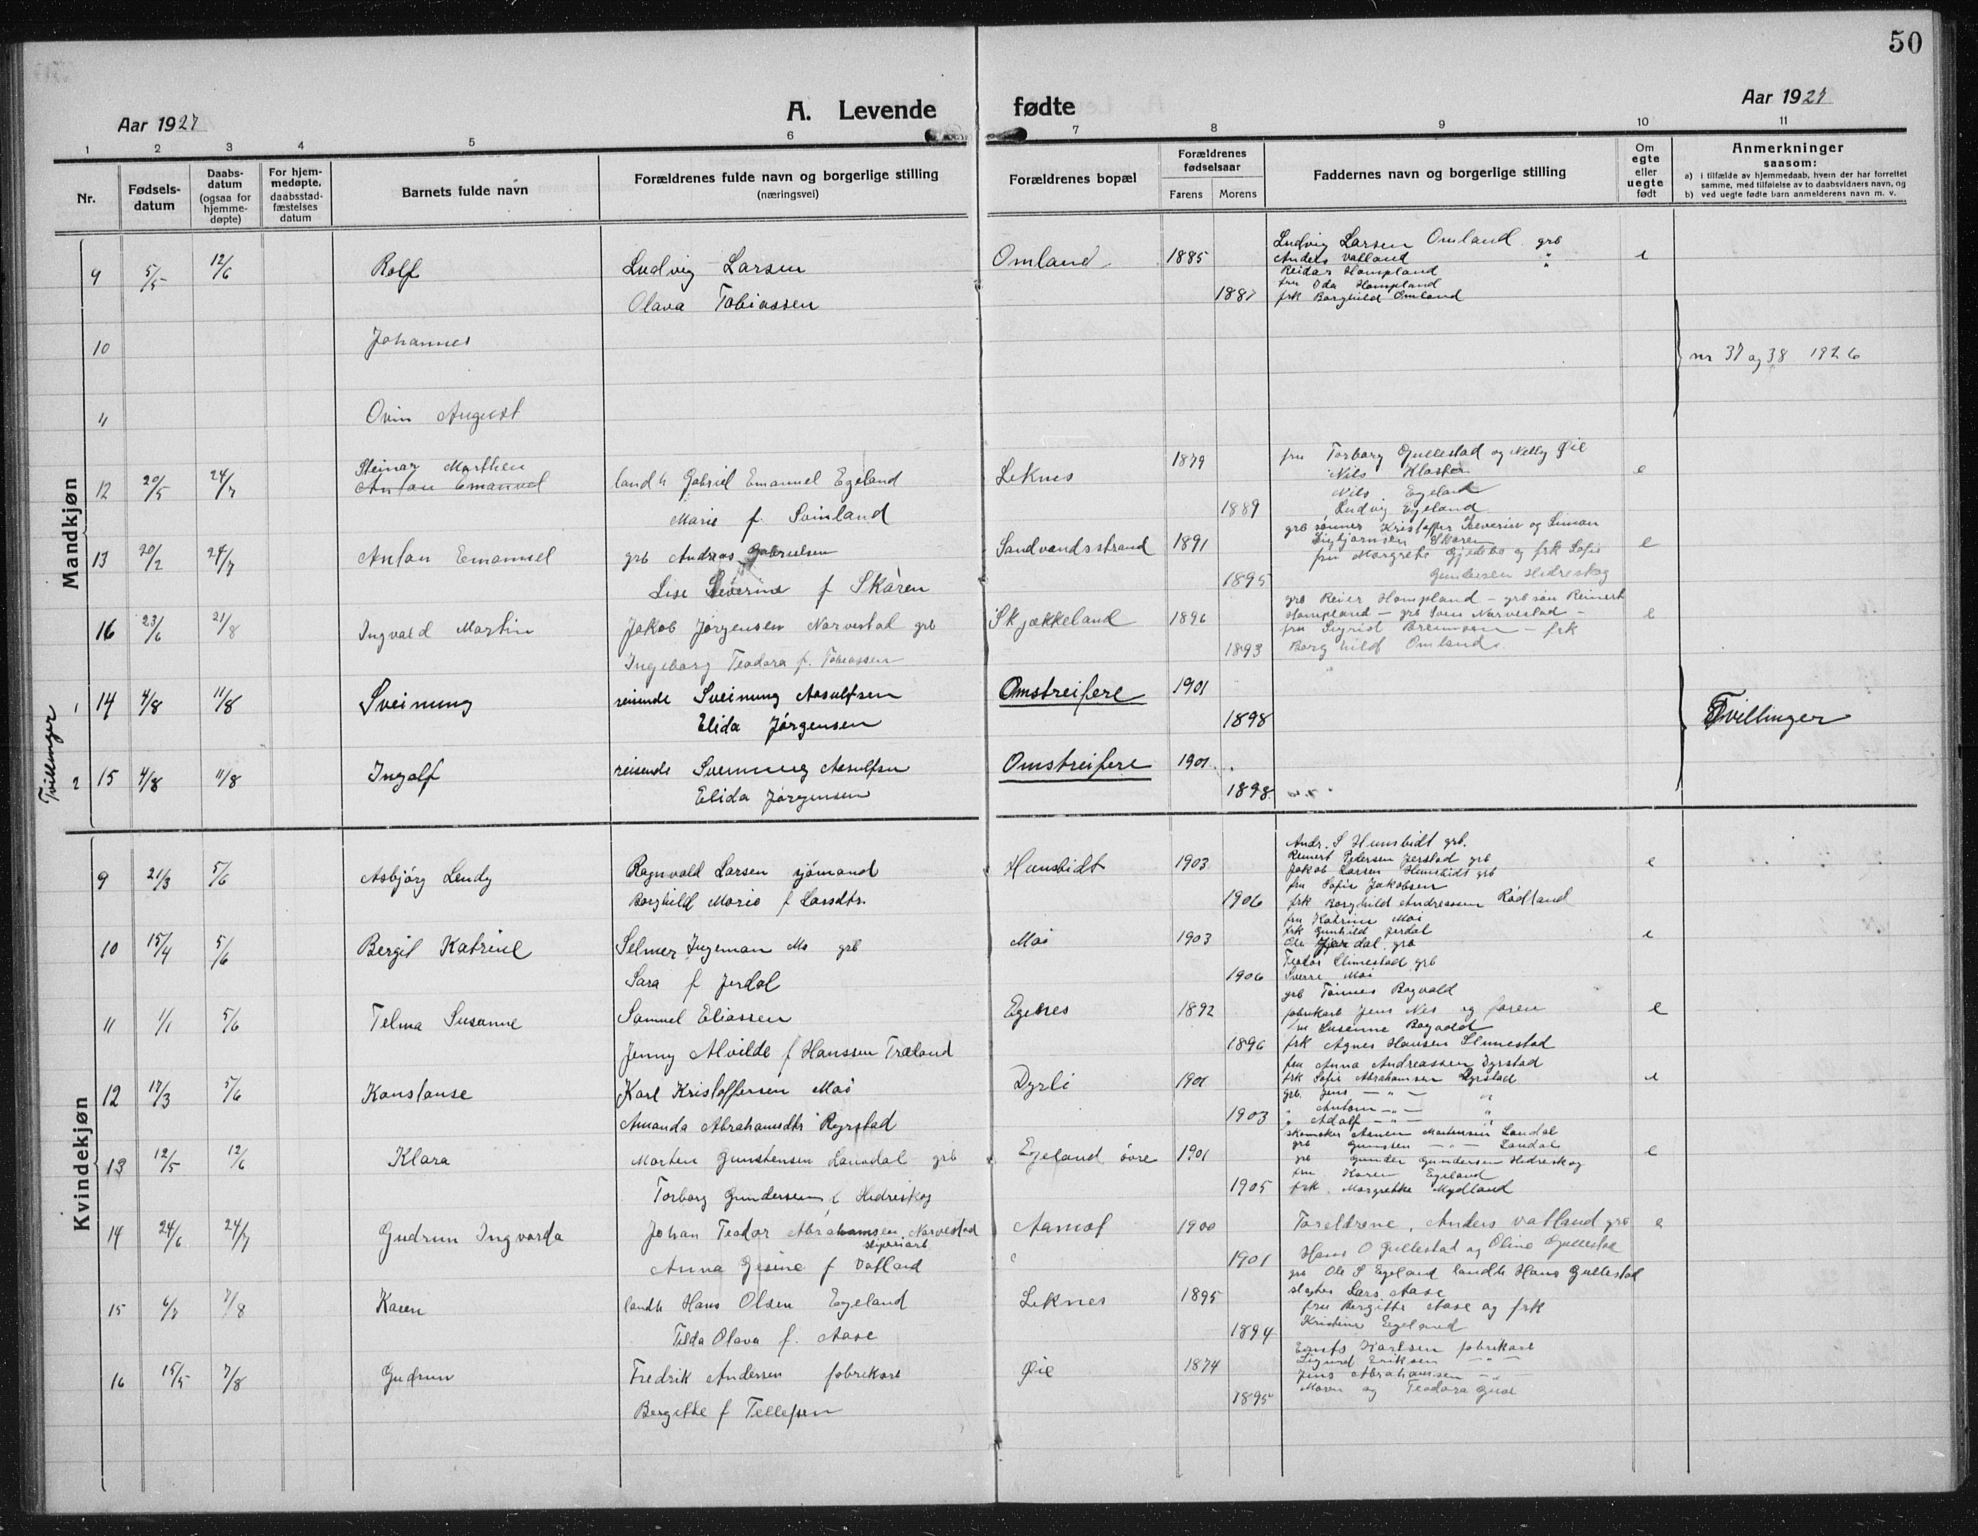 50
Aar 1927 A. Levende fødte Aar 1927
1 2 3 4 5 6 7 8 9 10 11
Nr.
Fødsels-
datum
Daabs-
datum
(ogsaa for
hjemme-
døpte)
For hjem-
medøpte,
daabsstad-
fæstelses
datum
Barnets fulde navn
Forældrenes fulde navn og borgerlige stilling
(næringsvei)
Forældrenes bopæl
Forældrenes
fødselsaar
Farens Morens
Faddernes navn og borgerlige stilling
Om
egte
eller
uegte
født
Anmerkninger
saasom:
a) i tilfælde av hjemmedaab, hvem der har forrettet
samme, med tilføielse av to daabsvidners navn, og
b) ved uegte fødte barn anmelderens navn m. v.
Mandkjøn
9 5/5 12/6 Rolf Ludvig Larsen Omland 1885 Ludvig Larsen Omland grb e
Anders Vatland "
Reidar Hompland "
fru Oda Hompland
Olava Tobiassen 1887 frk Borghild Omland
10 Johannes
nr 37 og 38 1926
11 Ovin August
Steinar Marthen
12 20/5 24/7 Anton Emanuel landh Gabriel Emanuel Egeland Leknes 1879 fru Torborg Gullestad og Nelly Øie e
Nils Klaster
Nils Egeland
Marie f. Svinland 1889 Ludvig Egeland
13 20/2 24/7 Anton Emanuel grb Andreas Gabrielsen Sandvandsstrand 1891 grb sønner Kristoffer Severin og Simon e
Sigbjørnsen Skåren
fru Margrete Gjedsbo og frk Sofie
Lise Severine f Skåren 1895 Gundersen Hidreskog
16 23/6 21/8 Ingvald Martin Jakob Jørgensen Narvestad grb Skjækkeland 1896 grb Reier Hompland - grb søn Reinert e
Hompland - grb Sven Narvestad -
fru Sigrid Bremsen - frk
Ingeborg Teodora f. Tobiassen 1893 Borghild Omland.
Tvillinger
1 14 4/8 11/8 Sveinung reisende Sveinung Aasulfsen Omstreifere 1901
Elida Jørgensen 1898 Tvillinger
2 15 4/8 11/8 Ingolf reisende Sveinung Aasulfsen Omstreifere 1901
Elida Jørgensen 1898
Kvindekjøn
9 21/3 5/6 Asbjørg Lendy Ragnvald Larsen sjømand Hunsbidt 1903 Andr. S Hunsbidt grb. e
Reinert Pedersen Jerstad grb
Jakob Larsen Hunsbidt grb
fru Sofie Jakobsen
Borghild Marie f Larsdtr. 1906 frk Borghild Andreassen Rødland
10 15/4 5/6 Bergit Katrine Selmer Ingeman Mo grb Moi 1903 fru Katrine Moi e
frk Gunhild Jerdal
Ole Jerdal grb
Teodor Slimestad grb
Sara f Jerdal 1906 Sverre Moi
11 1/1 5/6 Telma Susanne Samuel Eliassen Egenes 1892 grb Tønnes Bagvald e
fabrikarb Jens Nes og
fru Susanne Bagvald
Jenny Alvilde f Hanssen Træland 1896 frk Agnes Hansen Slimestad
12 17/3 5/6 Konstanse Karl Kristoffersen Moi Dyrli 1901 fru Anna Andreassen Dyrstad e
frk Sofie Abrahamsen Dyrstad
grb. Jens - " - "
" Anton - " - "
Amanda Abrahamsdtr Ryrstad 1903 " Adolf - " - "
13 12/5 12/6 Klara Morten Gunstensen Landal grb Egeland øvre 1901 skomaker Asmen Mortensen Landal e
grb Gunsten - " - Landal
grb Gunder Gundersen Hidreskog
fru Karen Egeland
Torborg Gundersen f Hidreskog 1905 frk. Margrethe Mydland
14 24/6 24/7 Gudrun Ingvarda Johan Teodor Abrahamsen Narvestad Aamot 1900 Foreldrene, Anders Vatland grb e
Anna Gesine f Vatland 1901 Hans O Gullestad og Oline Gullestad
15 6/7 7/8 Karen landh Hans Olsen Egeland Leknes 1895 grb Ole S Egeland landh Hans Gullestad
slagter Lars Aase
fru Bergitte Aase og frk
Tilda Olava f. Aase 1894 Kristine Egeland
16 15/5 7/8 Gudrun Fredrik Andersen fabrikarb Øie 1874 Karlsen fabrikarb
Sigurd Eriksen - " -
Jens Abrahamsen - " -
Bergitte f Tellefsen 1895 Maren og Teodora Øie